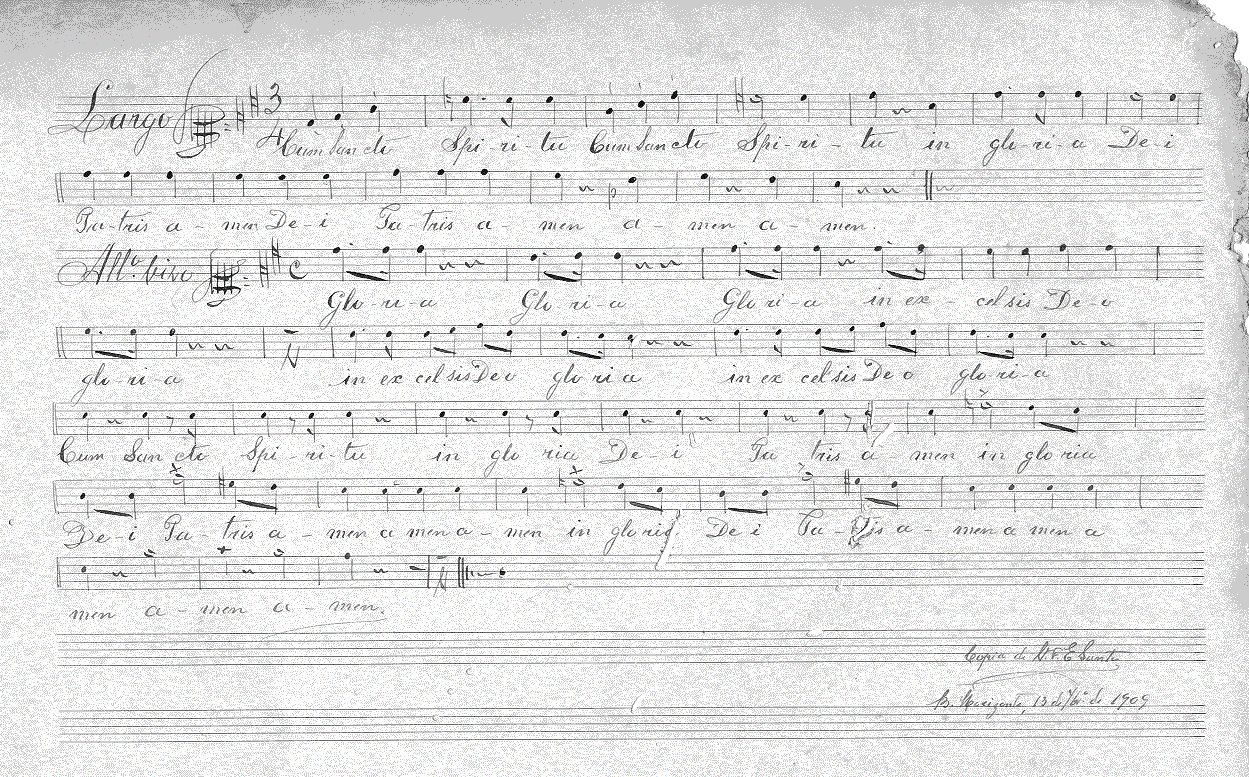 Largo 3 4 Cum San cto Spi - ri - tu Cum San cto Spi - ri - tu in glo - ri - a De - i
Pa - tris a - men De - i Pa - tris a - men a - men a - men.
All.º vivo C Glo - ri - a Glo ri - a Glo ri - a in ex - cel sis De - o
glo - ri - a in ex cel sis De o glo ri a in ex cel sis De o glo - ri - a
Cum San cto Spi - ri - tu in glo ria De - i Pa tris a - men in glo ria
De - i Pa - tris a - men a men a - men in glo ria De i Pa - tris a - men a men a
men a - men a - men.
Copia de
B. Horizonte, 13 de 7bro de 1909